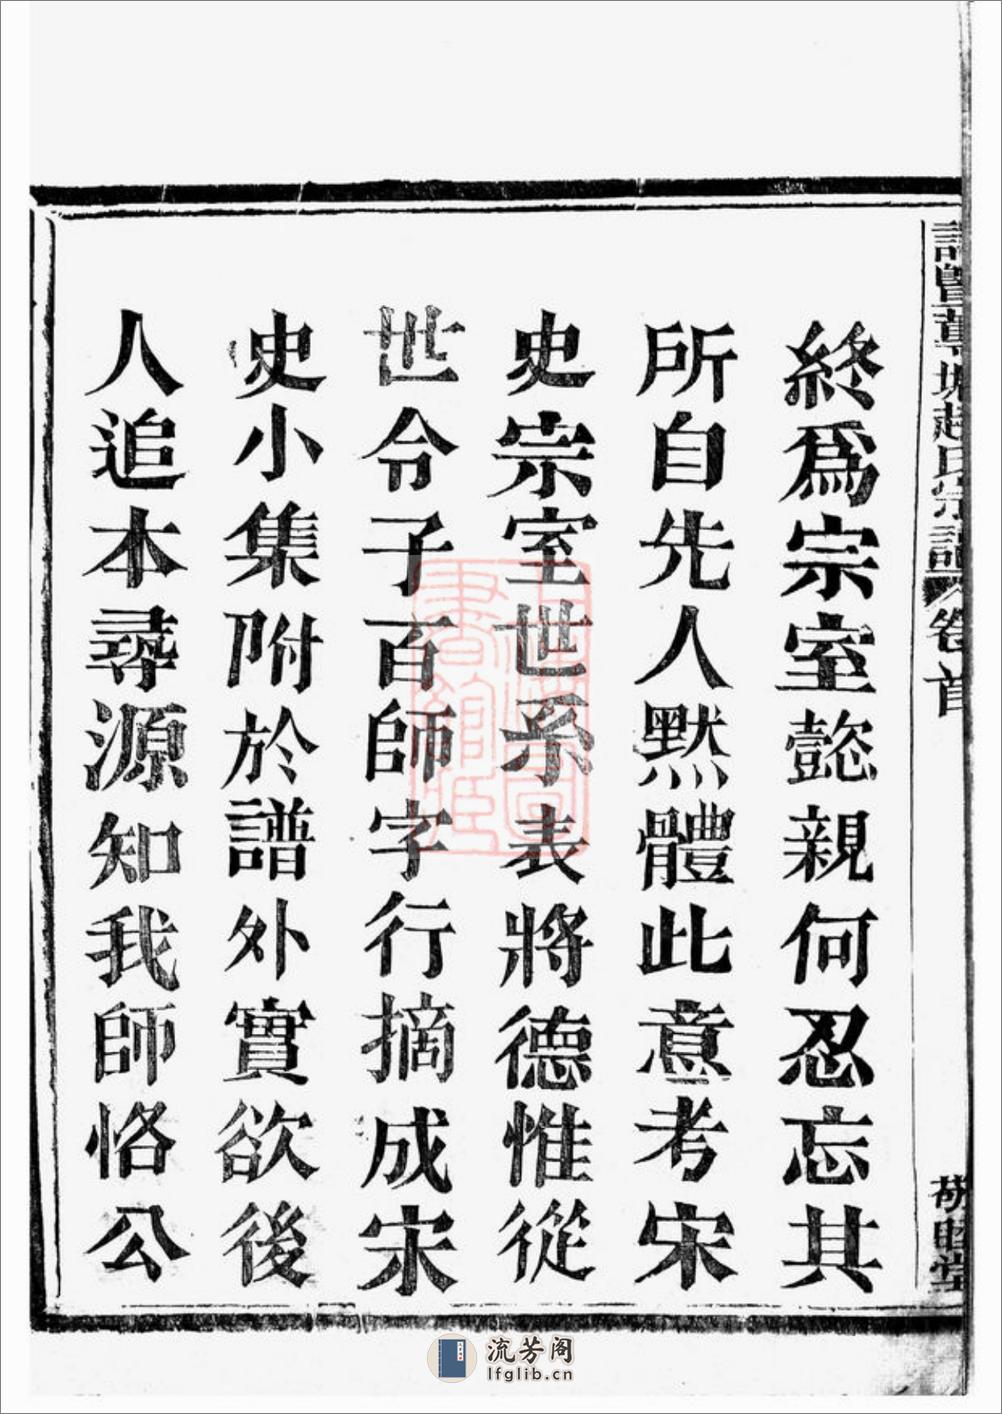 終爲宗室懿親何忍忘其
所自先人默體此意考宋
史宗室世系表將德惟從
世令子百師字行摘成宋
史小集附於譜外實欲後
人追本尋源知我師恪公
趙氏宗譜
卷首
睦堂
流芳阁
lfglib.cn